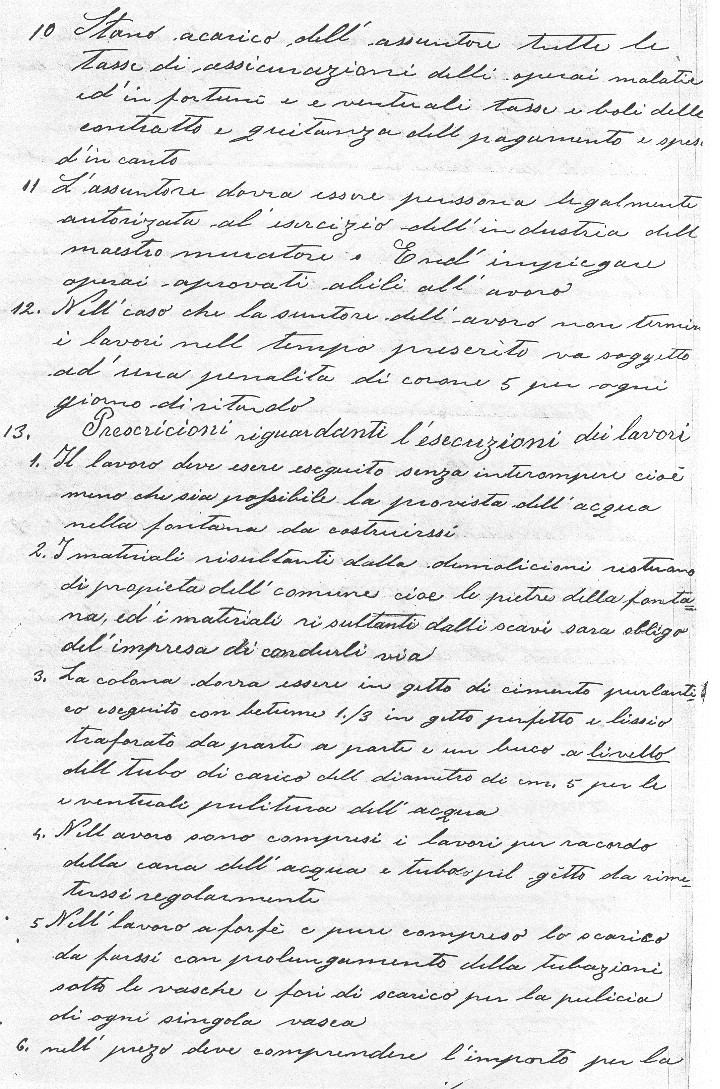 10 Stano acarico dell' assuntore tutte le
tasse di assicurazioni delli operai malatie
ed'in fortuni e e ventuali tasse e boli delle
contratto e quitanza dell pagamento e spese
d'in canto
11 L'assuntore dovra essere perssona legalmente
autorizata al'esercizio dell'industria dell
maestro muratore. End' impiegare
operai aprovati abili all'avoro
12. Nell'caso che la suntore dell'avoro non termin
i lavori nell tempo prescrito va soggetto
ad'una penalita di corone 5 per ogni
giorno di ritardo
13. Prescricioni riguardanti l'esecuzioni dei lavori
1. Il lavoro deve esere eseguito senza interompere cioè
meno che sia possibile la provista dell'acqua
nella fontana da costruirssi
2. I materiali risultanti dalla demolicioni restrano
di propieta dell'comune cioe le pietre della fonta=
na, ed'i materiali risultanti dalli scavi sara obligo
del'impresa di condurli via
3. La colona dovra essere in getto di cimento purlanti=
co eseguito con betume 1./3 in getto perfetto e lissio
traforato da parte a parte e un buco a livello
dell tubo di carico dell diametro di cm. 5 per le
e ventuali pulitura dell'acqua
4. Nell avoro sono compresi i lavori per racordo
della cana dell'acqua e tubo pel getto da rime=
terssi regolarmente
5 Nell'lavoro a forfè e pure compreso lo scarico
da farssi con prolungamento della tubazioni
sotto le vasche e fori di scarico per la pulicia
di ogni singola vasca
6. nell' prezo deve comprendere l'importo per la